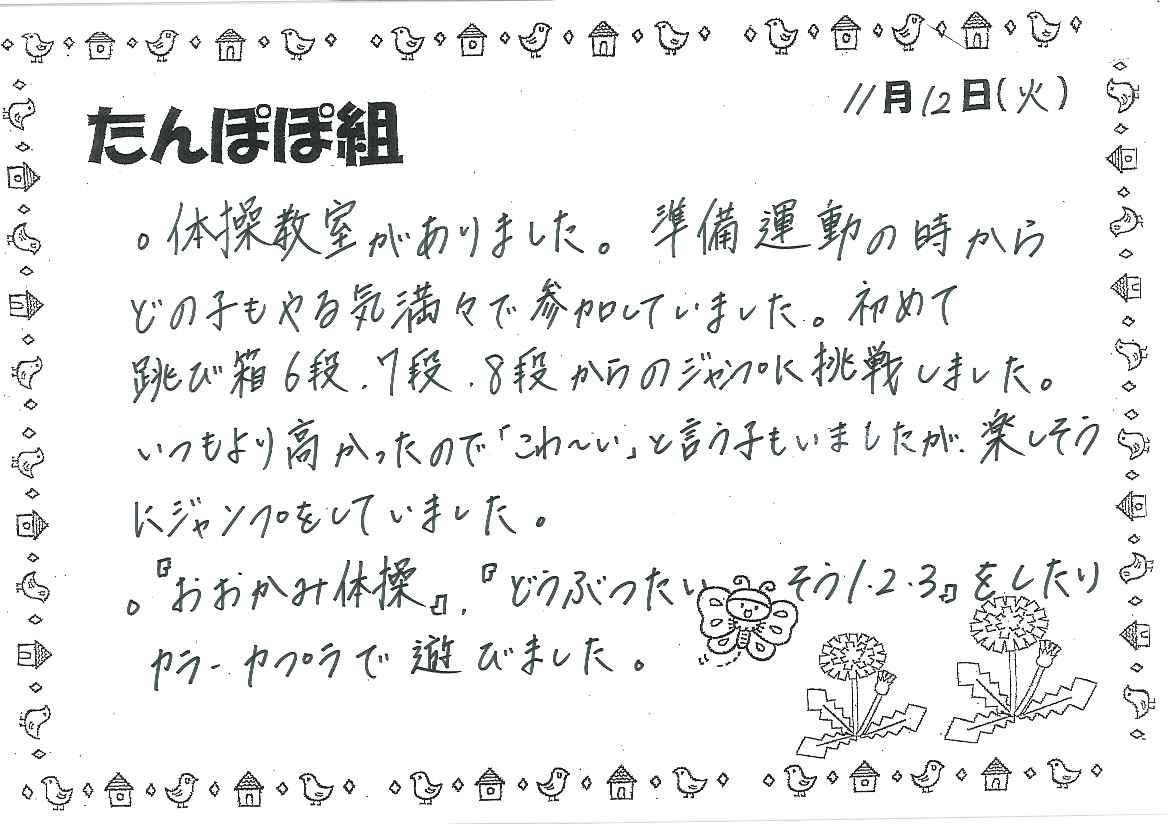 たんぽぽ組
11月12日(火)
。体操教室がありました。準備運動の時から
どの子もやる気満々で参加していました。初めて
跳び箱6段、7段、8段からのジャンプに挑戦しました。
いつもより高かったので「こわ～い」と言う子もいましたが、楽しそう
にジャンプをしていました。
。『おおかみ体操』、『どうぶつたいそう1・2・3』をしたり
カラーカプラで遊びました。